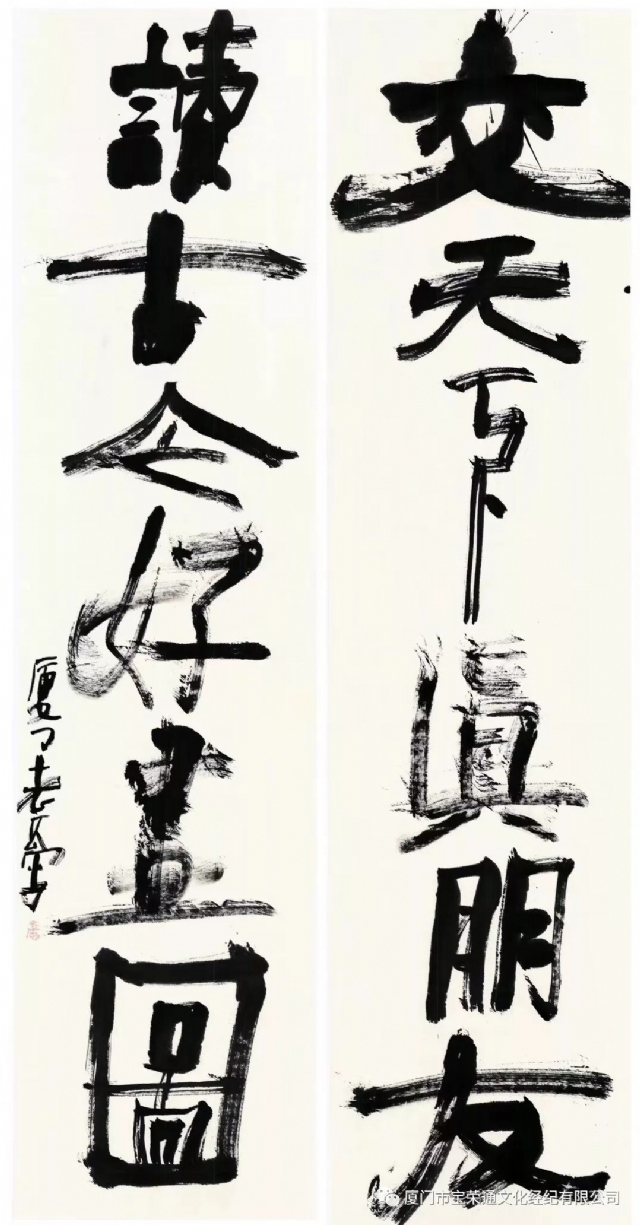 交天下眞朋友
讀古今好畫圖
厦门老
厦门市宝荣通文化经纪有限公司